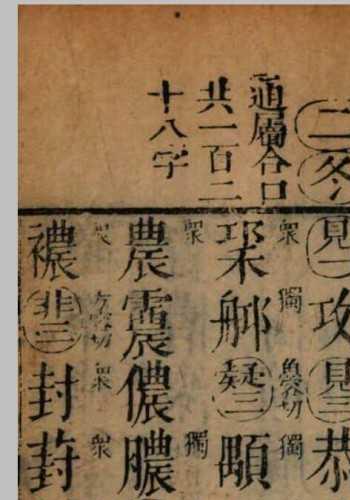 二冬
通屬合口
共一百二
十八字
見一攻見三恭
眾 獨 魚容切 獨
䂬䑦疑三顒
眾 獨
農䨲儂膿
眾 方容切 眾 眾
襛非三封葑